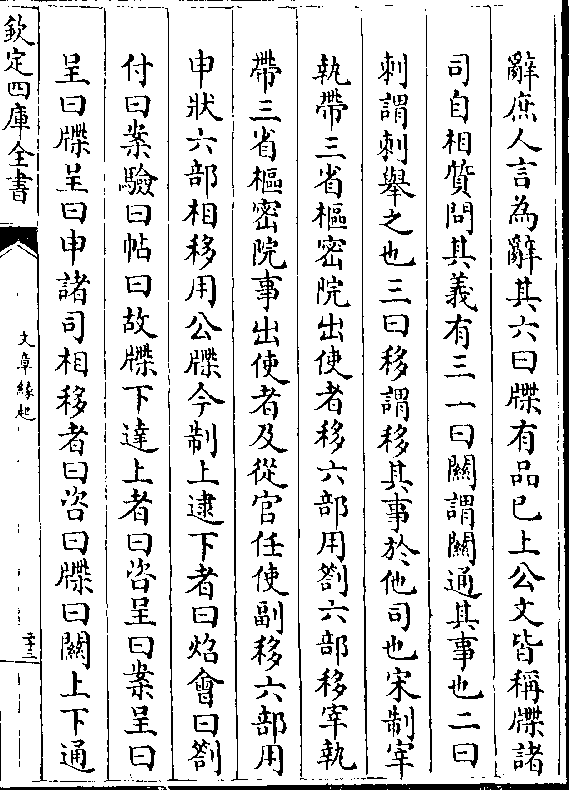 辭庶人言為辭其六曰牒有品已上公文皆稱牒諸
司自相質問其義有三一曰關謂關通其事也二曰
刺謂刺舉之也三曰移謂移其事於他司也宋制宰
執帶三省樞密院出使者移六部用劄六部移宰執
帶三省樞密院事出使者及從官任使副移六部用
申狀六部相移用公牒今制上逮下者曰炤會曰劄
付曰案驗曰帖曰故牒下達上者曰咨呈曰案呈曰
呈曰牒呈曰申諸司相移者曰咨曰牒曰關上下通
欽定四庫全書
文章緣起
二十三